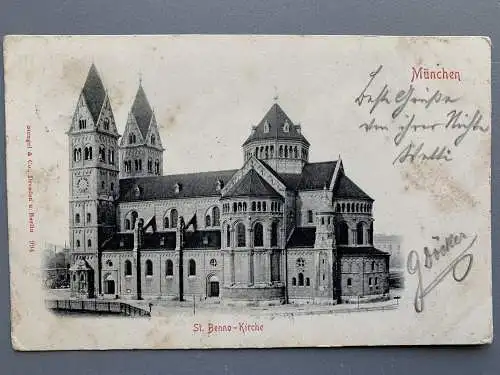 München
Beste Grüße
von ihrer Nichte
Wetti
Stengel & Co., Dresden u. Berlin 904
St. Benno-Kirche